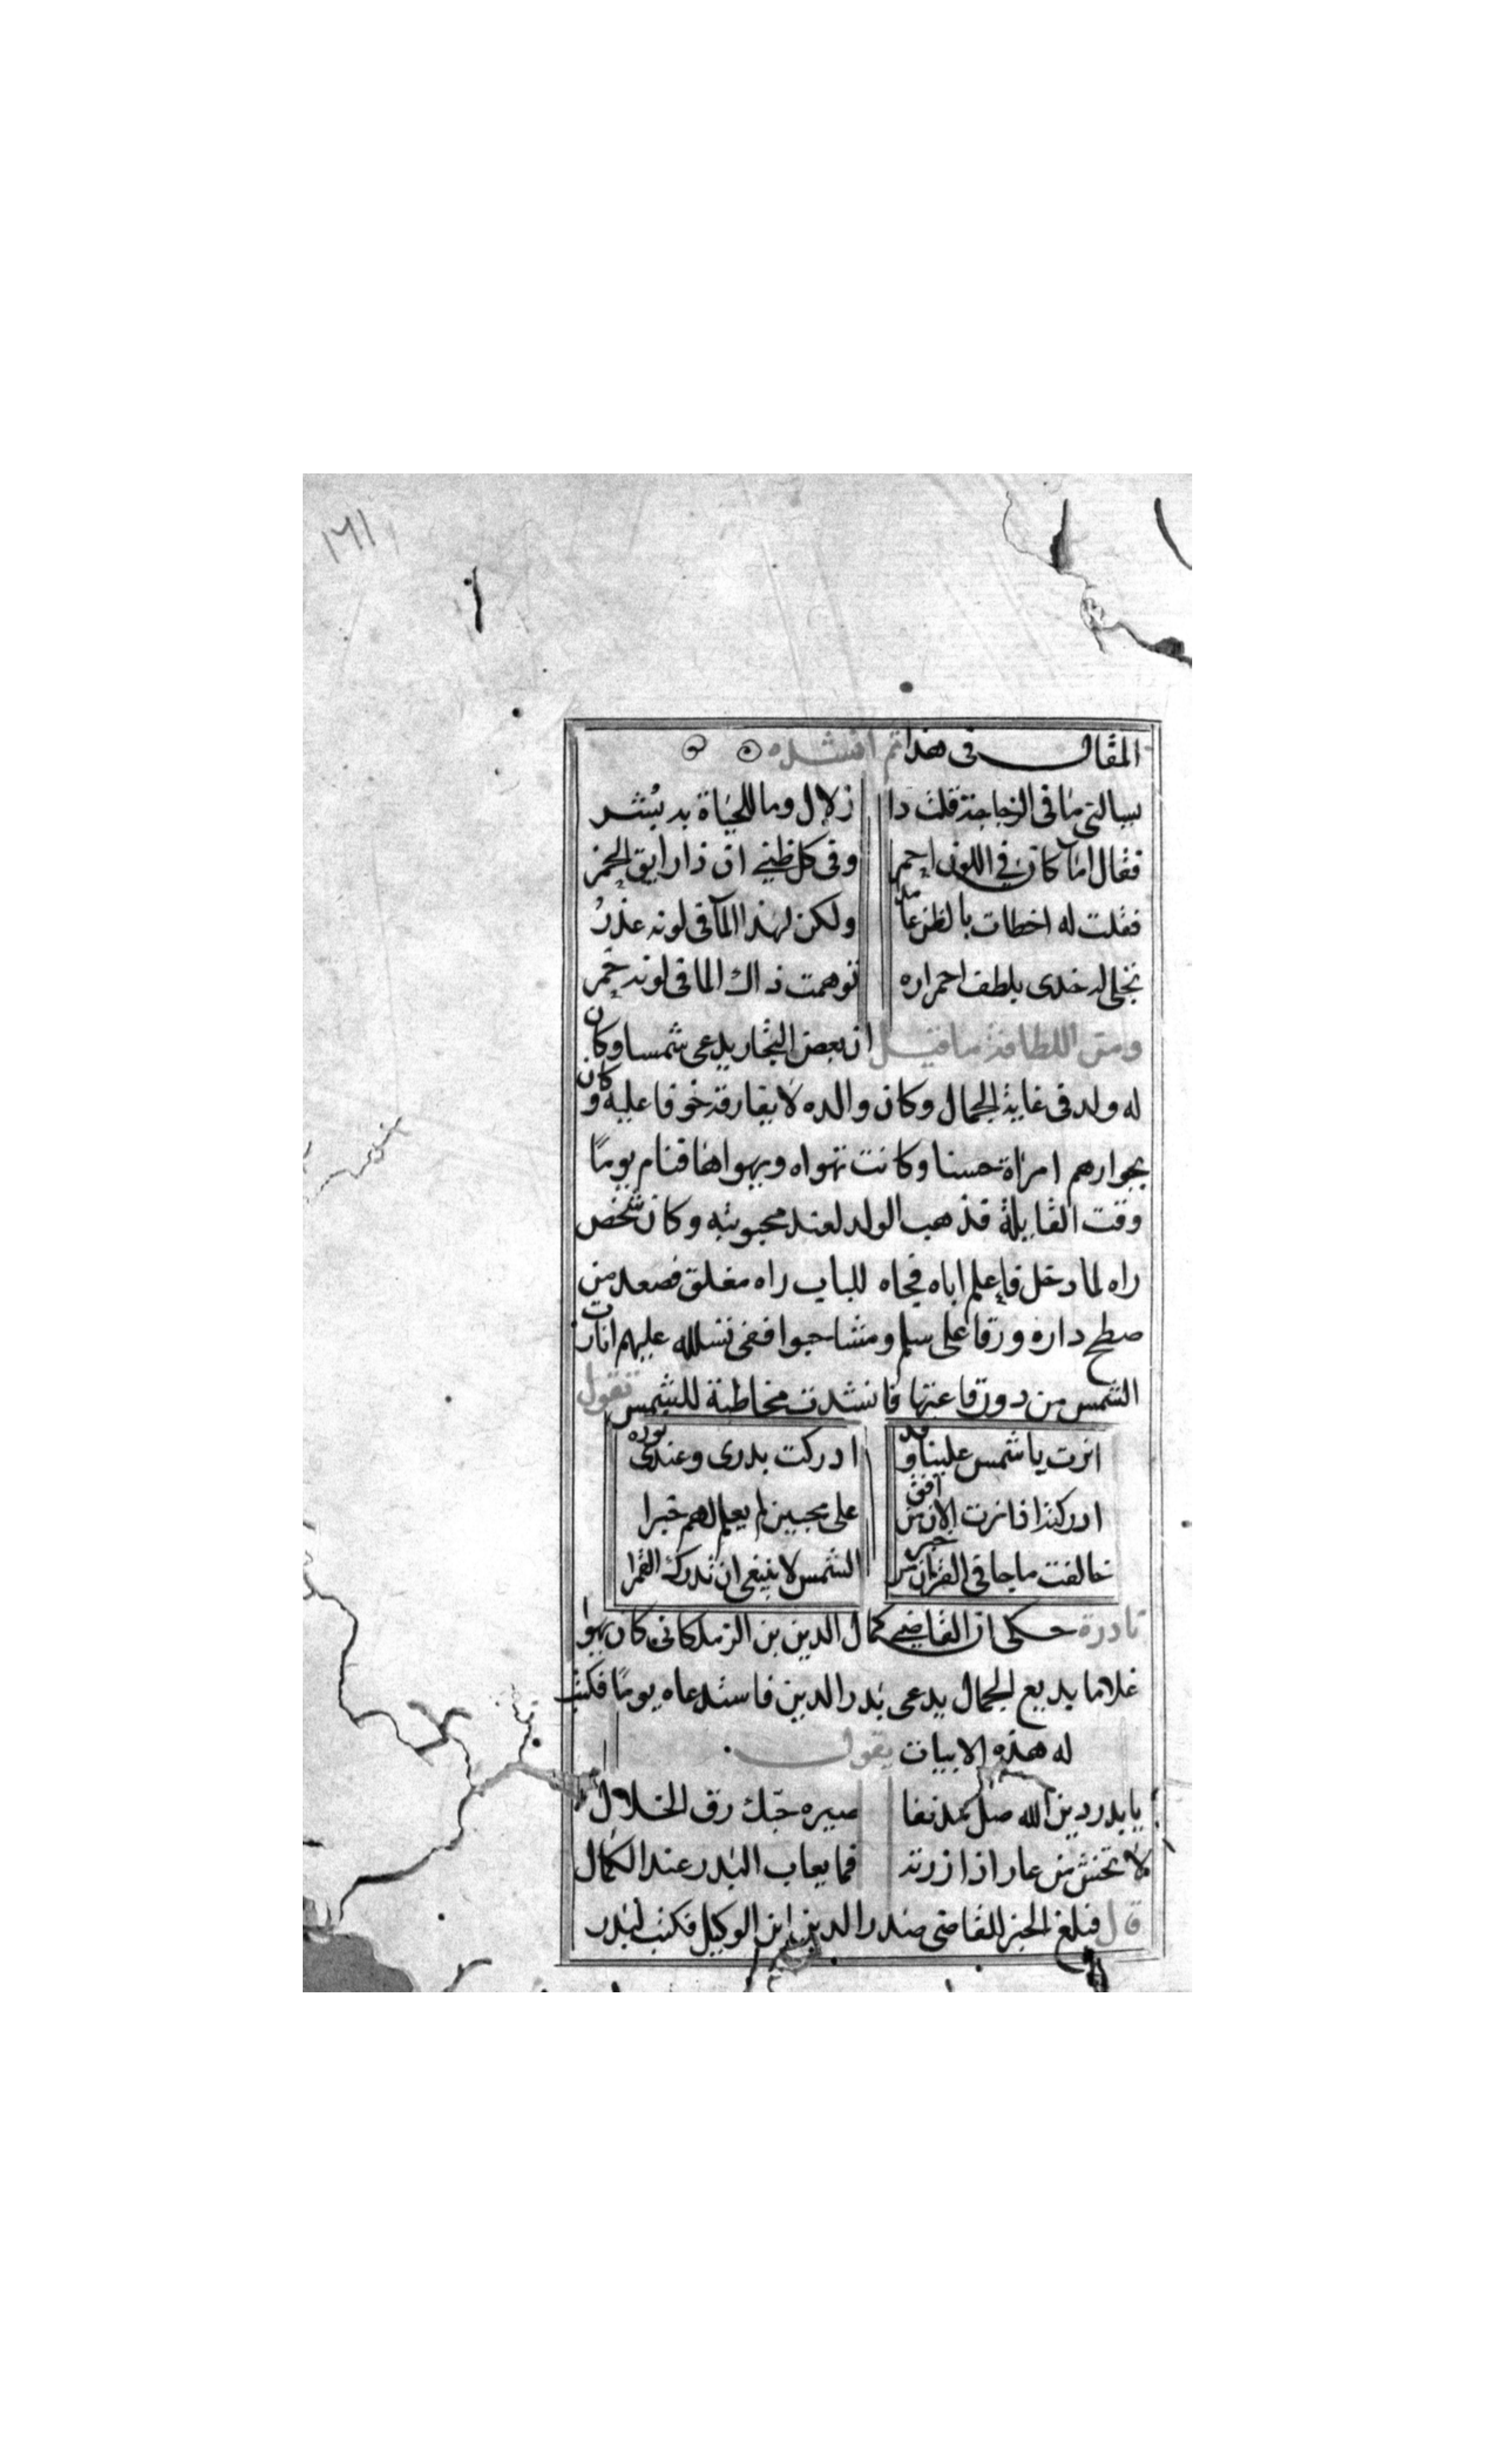 ١٦١
المقال فى هذا ثم انشده
يسالنى ما فى الزجاجة قلت دا زلال وما للحياة به بُشر
فقال اما كان فى اللون احمر وفى كل ظنى ان ذا رايق الخمر
فقلت له اخطات بالظن عامدا ولكن لهذا الما فى لونه عذرُ
تجلى له خدى بلطف احمراره توهمت ذاك الما فى لونه خمر
ومن اللطافة ما قيل ان بعض التجار يدعى شمسا وكان
له ولد فى غاية الجمال وكان والده لا يفارقه خوفا عليه وكان
بجوارهم امراة حسنا وكانت تهواه ويهواها فنام يومًا
وقت القايلة فذهب الولد لعند محبوبته وكان شخص
راه لما دخل فاعلم اباه فجاه للباب راه مغلق فصعد من
صطح داره ورقا على سلم ومشا حبوا ففى عليهم انارت
الشمس من دورقاعتها فانشدت مخاطبة للشمس تقول
انرت يا شمس علينا وقد ادركت بدرى وعندى نوره
ادركتنا فانرت الان من افق على محبين لم يعلم لهم خبرا
خالفت ما جا فى القران من خبر الشمس لا ينبغى ان تدرك القمرا
نادرة حكى ان القاضى كمال الدين بن الزملكانى كان يهوا
غلاما بديع الجمال يدعى بدر الدين فاستدعاه يومًا فكتب
له هذه الابيات يقول
يا بدر دين الله صل مدنفا صيره حبك رق الخلال
لا تخش من عار اذا زرته فما يعاب البدر عند الكمال
قال فبلغ الخبر للقاضى صدر الدين ابن الوكيل فكتب لبدر